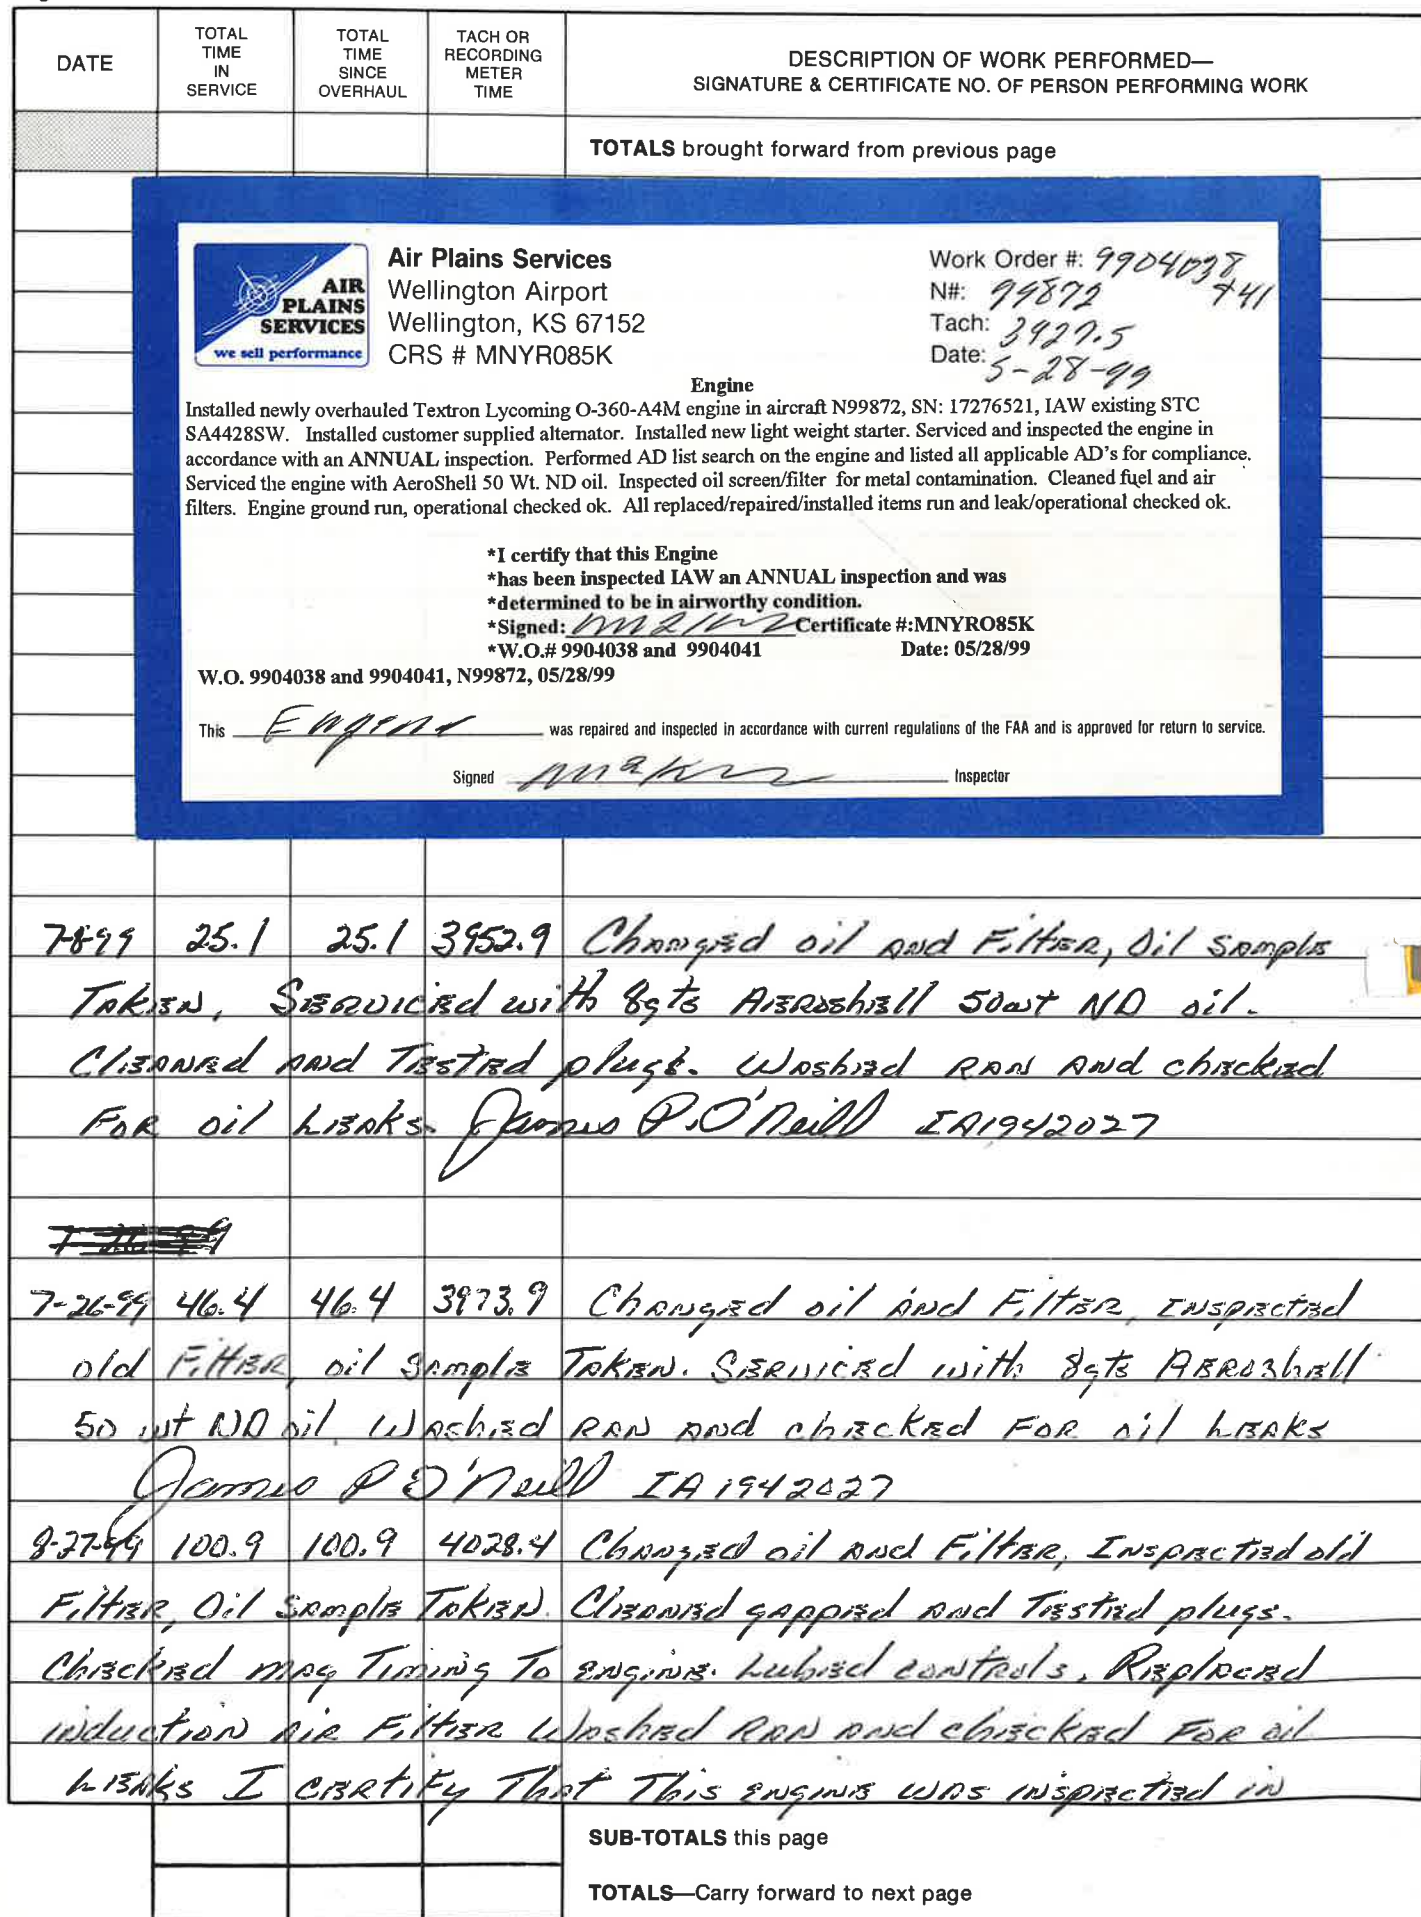 DATE
TOTAL TIME IN SERVICE
TOTAL TIME SINCE OVERHAUL
TACH OR RECORDING METER TIME
DESCRIPTION OF WORK PERFORMED—
SIGNATURE & CERTIFICATE NO. OF PERSON PERFORMING WORK
TOTALS brought forward from previous page
AIR
PLAINS
SERVICES
we sell performance
Air Plains Services
Wellington Airport
Wellington, KS 67152
CRS # MNYR085K
Work Order #: 9904038
+41
N#: 99872
Tach: 3927.5
Date: 5-28-99
Engine
Installed newly overhauled Textron Lycoming O-360-A4M engine in aircraft N99872, SN: 17276521, IAW existing STC
SA4428SW. Installed customer supplied alternator. Installed new light weight starter. Serviced and inspected the engine in
accordance with an ANNUAL inspection. Performed AD list search on the engine and listed all applicable AD's for compliance.
Serviced the engine with AeroShell 50 Wt. ND oil. Inspected oil screen/filter for metal contamination. Cleaned fuel and air
filters. Engine ground run, operational checked ok. All replaced/repaired/installed items run and leak/operational checked ok.
*I certify that this Engine
*has been inspected IAW an ANNUAL inspection and was
*determined to be in airworthy condition.
*Signed: Certificate #:MNYRO85K
*W.O.# 9904038 and 9904041 Date: 05/28/99
W.O. 9904038 and 9904041, N99872, 05/28/99
This Engine was repaired and inspected in accordance with current regulations of the FAA and is approved for return to service.
Signed Inspector
7-8-99 25.1 25.1 3952.9 Changed oil and Filter, Oil Sample
Taken, Serviced with 8qts Aeroshell 50wt ND oil.
Cleaned and Tested plugs. Washed Ran and checked
For oil Leaks. James P. O'Neill IA1942027
7-26-99 46.4 46.4 3973.9 Changed oil and Filter, Inspected
old Filter, oil sample Taken. Serviced with 8qts Aeroshell
50 wt ND oil. Washed Ran and checked For oil Leaks
James P O'Neill IA 1942027
8-27-99 100.9 100.9 4028.4 Changed oil and Filter, Inspected old
Filter, Oil Sample Taken. Cleaned gapped and Tested plugs.
Checked mag Timing To engine. Lubed controls, Replaced
induction air Filter Washed Ran and checked For oil
Leaks I certify That This engine was inspected in
SUB-TOTALS this page
TOTALS—Carry forward to next page